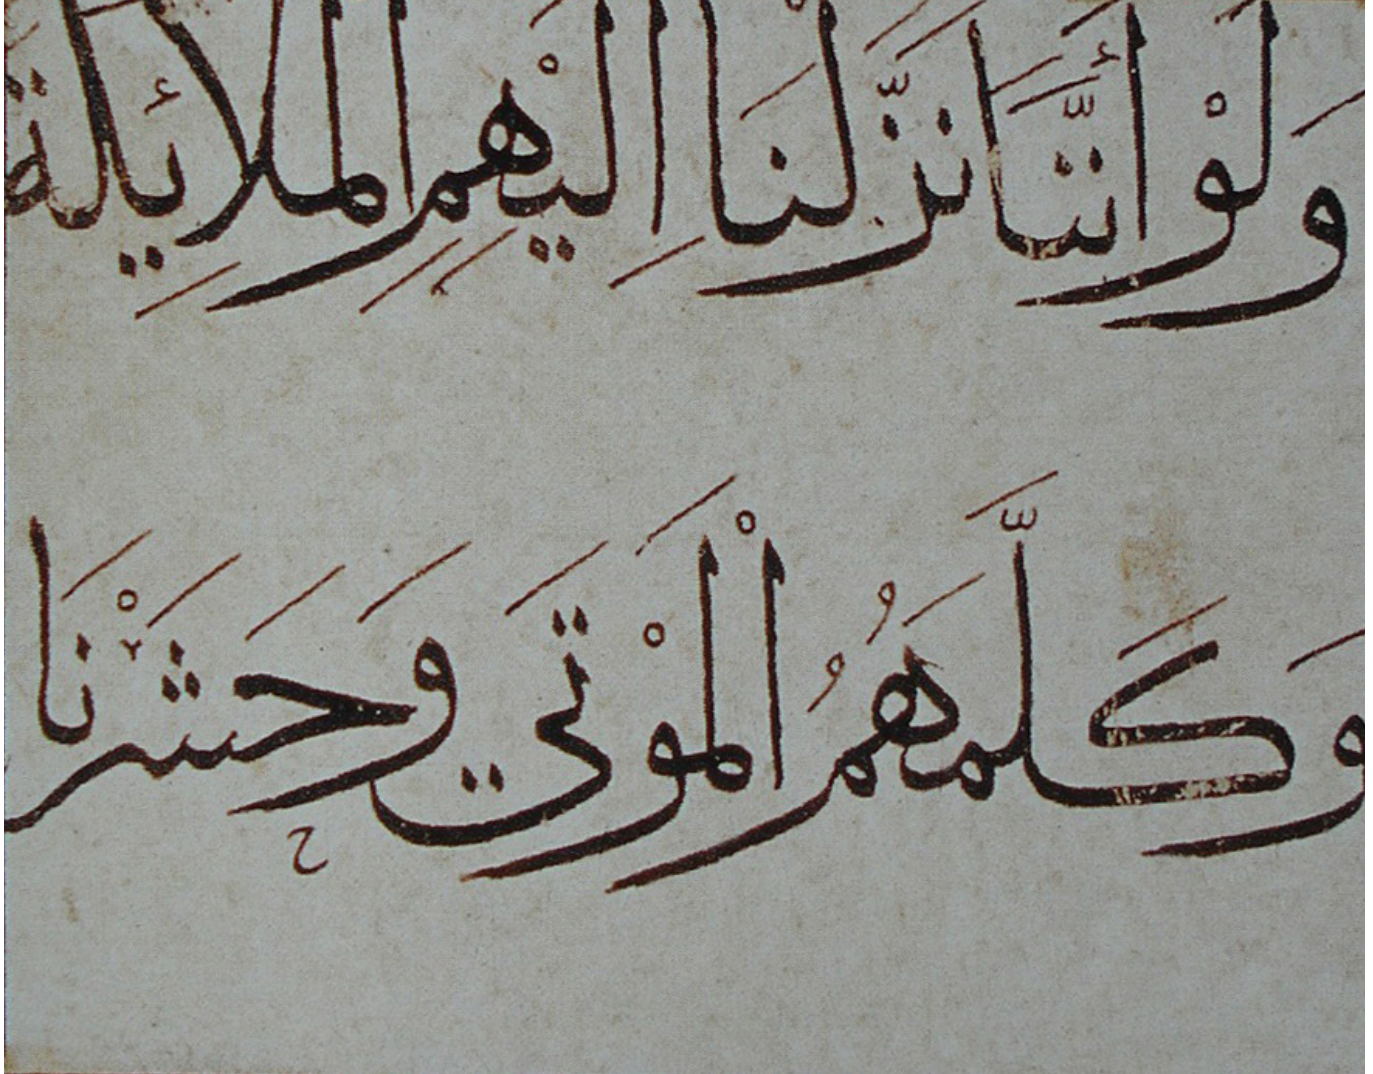 وَلَوْ أَنَّنَا نَزَّلْنَا اِلَيْهِمِ الْمَلَائِكَةَ
وَكَلَّمَهُمُ الْمَوْتَي وَحَشَرْنَا